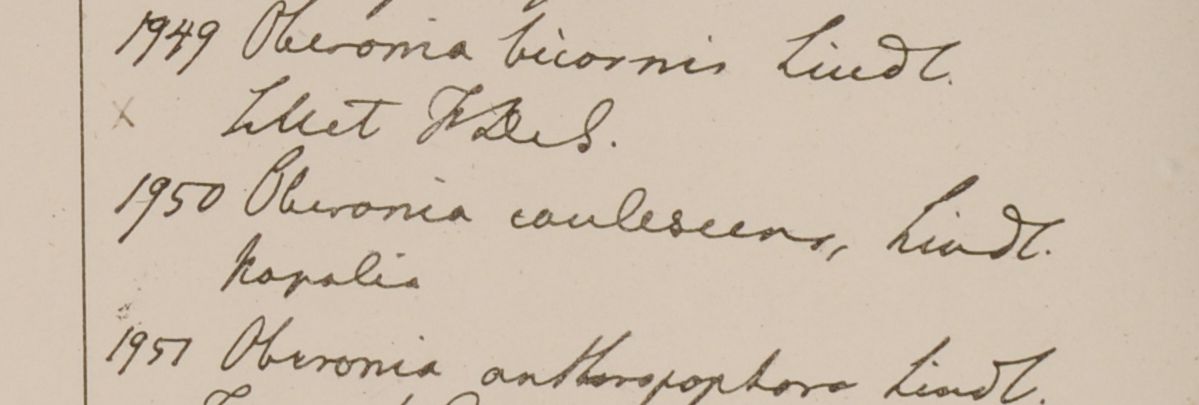 1949 Oberonia bicornis Lindl.
1950 Oberonia caulescens, Lindl.
Kapalia
1951 Oberonia anthropophora Lindl.